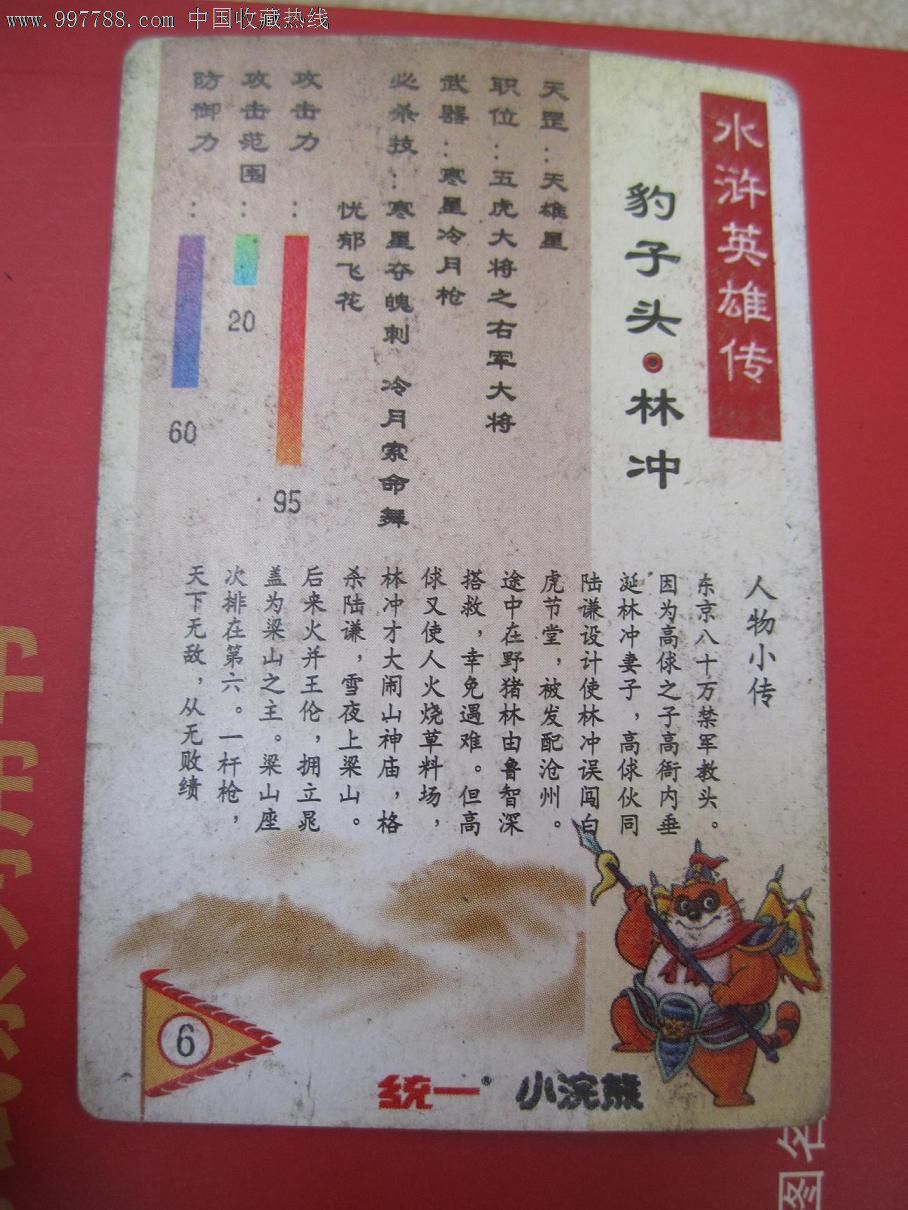 www.997788.com 中国收藏热线
水浒英雄传
豹子头·林冲
天罡：天雄星
职位：五虎大将之右军大将
武器：寒星冷月枪
必杀技：寒星夺魄刺 冷月索命舞
忧郁飞花
攻击力：
95
攻击范围：
20
防御力：
60
人物小传
东京八十万禁军教头。
因为高俅之子高衙内垂
涎林冲妻子，高俅伙同
陆谦设计使林冲误闯白
虎节堂，被发配沧州。
途中在野猪林由鲁智深
搭救，幸免遇难。但高
俅又使人火烧草料场，
林冲才大闹山神庙，格
杀陆谦，雪夜上梁山。
后来火并王伦，拥立晁
盖为梁山之主。梁山座
次排在第六。一杆枪，
天下无敌，从无败绩
6
统一® 小浣熊
图名